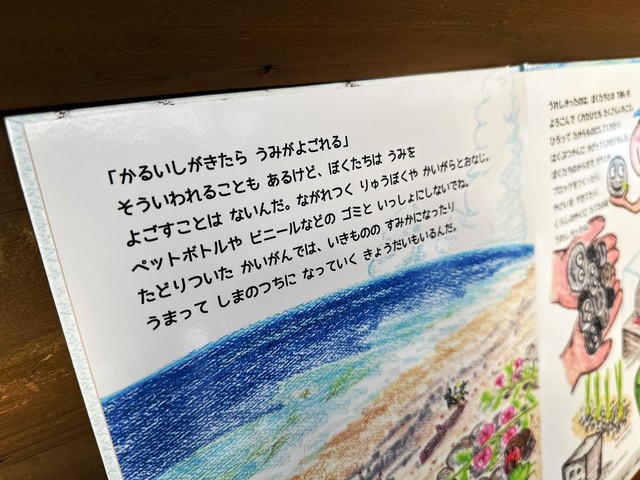 「かるいしがきたら うみがよごれる」
そういわれることも あるけど、ぼくたちは うみを
よごすことは ないんだ。ながれつく りゅうぼくや かいがらとおなじ。
ペットボトルや ビニールなどの ゴミと いっしょにしないでね。
たどりついた かいがんでは、いきものの すみかになったり
うまって しまのつちに なっていく きょうだいもいるんだ。
うれしかったのは、ぼくたちとの であいを
よろこんで くれたひとも たくさんいること。